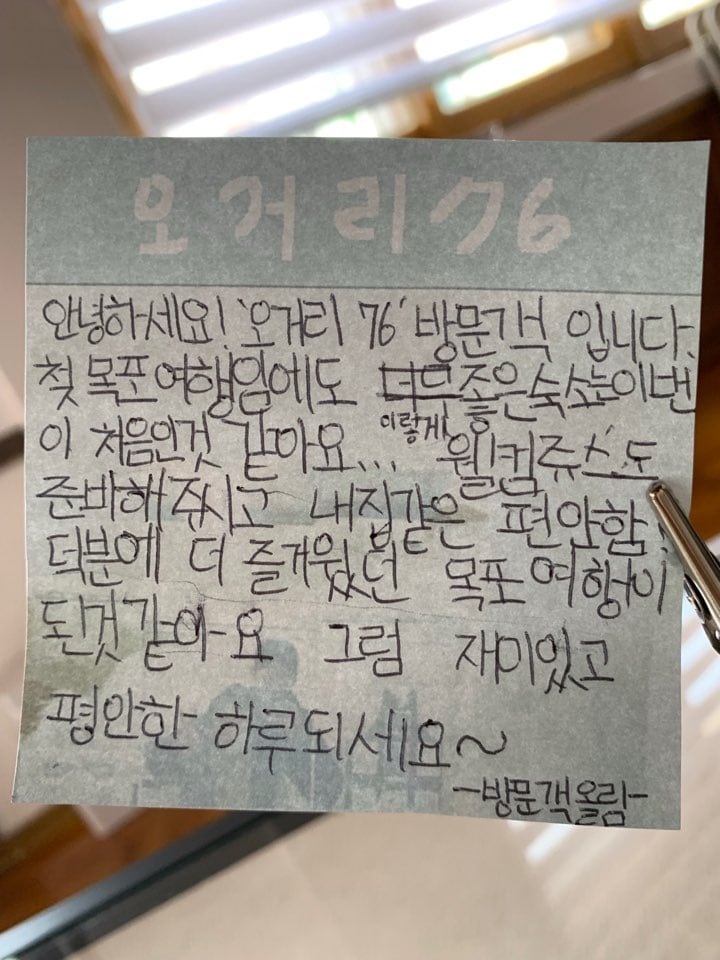 오거리76
안녕하세요! '오거리 76' 방문객 입니다.
첫 목포여행임에도 좋은숙소는이밴
이 처음인것 같아요... 이렇게 웰컴쥬스도
준바해주시고 내집같은 편안함!
덕분에 더 즐거웠던 목포여행이
된것같아요 그럼 재미있고
평안한 하루되세요~
-방문객올림-